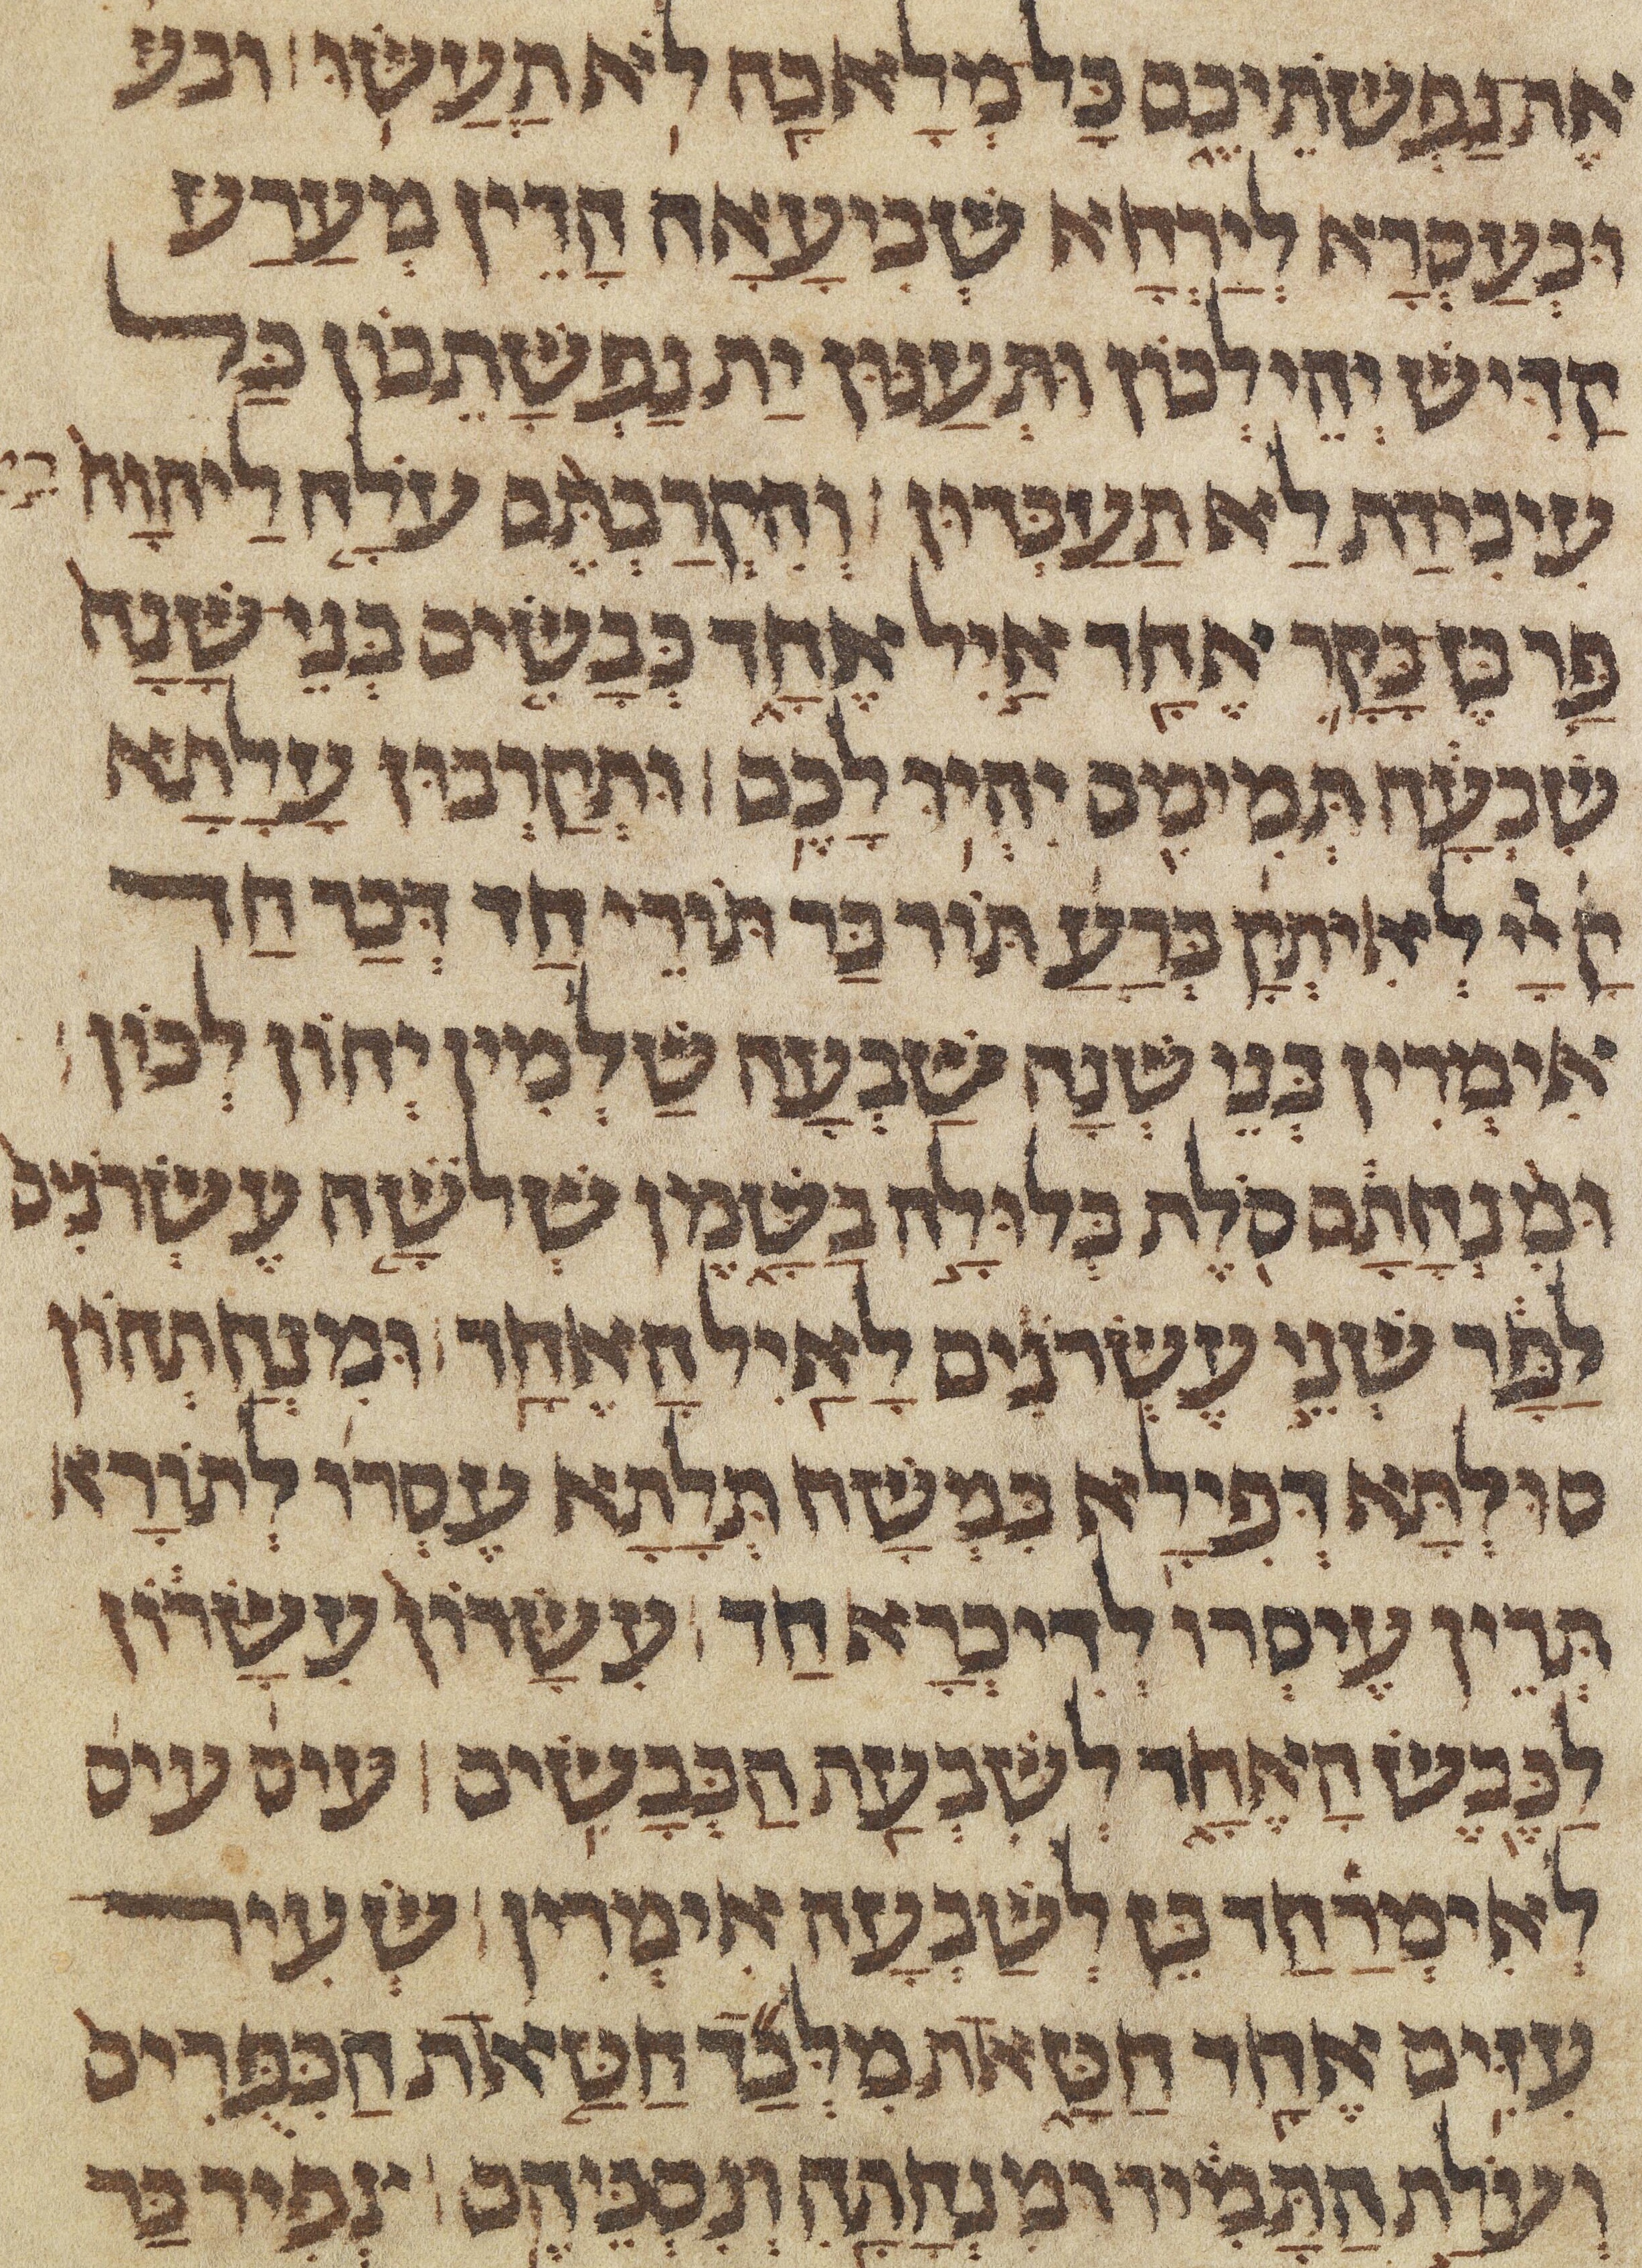 אֶת נַפְשֹׁתֵיכֶם כָּל מְלָאכָה לֹא תַעֲשׂוּ ׀ ובע
וּבְעַסְרָא לְיַרְחָא שְׁבִיעָאָה הָדֵין מְעַרַע
קַדִּישׁ יְהֵי לְכוֹן וּתְעַנּוּן יַת נַפְשָׁתֵכוֹן כַּל
עִיבִידַת לַא תַעַבְּדוּן ׀ וְהִקְרַבְתֶּם עֹלָה לַיהוָה רי
פַּר בֶּן בָּקָר אֶחָד אַיִל אֶחָד כְּבָשִׂים בְּנֵי שָׁנָה
שִׁבְעָה תְּמִימִם יִהְיוּ לָכֶם ׀ וּתְקַרְבוּן עָלָתָא
קָ יָיָ לְאִיתְקָ בְּרַעַ תּוֹר בַּר תּוֹרֵי חַד דְּכַר חַד
אִימְּרִין בְּנֵי שְׁנָה שַׁבְעָה שַׁלְמִין יְהוֹן לְכוֹן ׀
וּמִנְחָתָם סֹלֶת בְּלוּלָה בַשָּׁמֶן שְׁלֹשָׁה עֶשְׂרֹנִים
לַפָּר שְׁנֵי עֶשְׂרֹנִים לָאַיִל הָאֶחָד ׀ וּמִנְחָתְהוֹן
סוּלְתָּא דְּפִילָא בִּמְשַׁח תְּלָתָא עֶסְרוֹ לְתוֹרָא
תְּרֵין עֶיסְרוֹ לְדִיכְרָא חַד ׀ עִשָּׂרוֹן עִשָּׂרוֹן
לַכֶּבֶשׂ הָאֶחָד לְשִׁבְעַת הַכְּבָשִׂים ׀ עיס עיס
לְאִימְּרַ חַד כֵּן לְשַׁבְעָה אִימְּרִין ׀ שְׂעִיר
עִזִּים אֶחָד חַטָּאת מִלְּבַד חַטַּאת הַכִּפֻּרִים
וְעֹלַת הַתָּמִיד וּמִנְחָתָהּ וְנִסְכֵּיהֶם ׀ צְפִיר בַּר